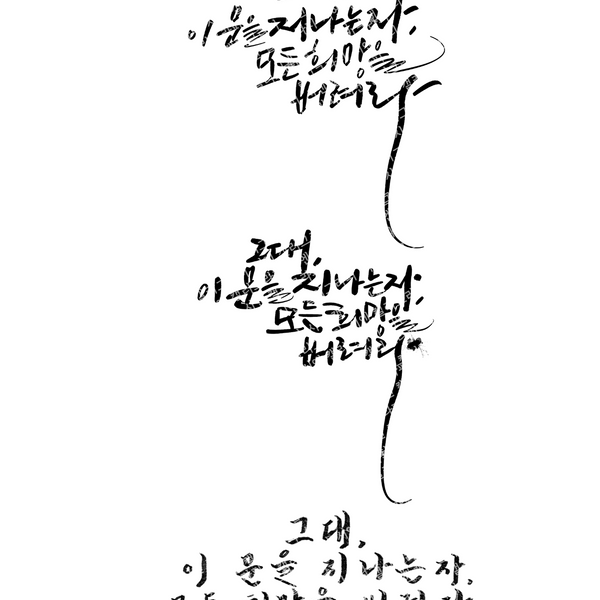 이 문을 지나는자;
모든 희망을
버려라
그대,
이 문을 지나는자;
모든 희망을
버려라
그대,
이 문을 지나는 자,
모든 희망을 버려라